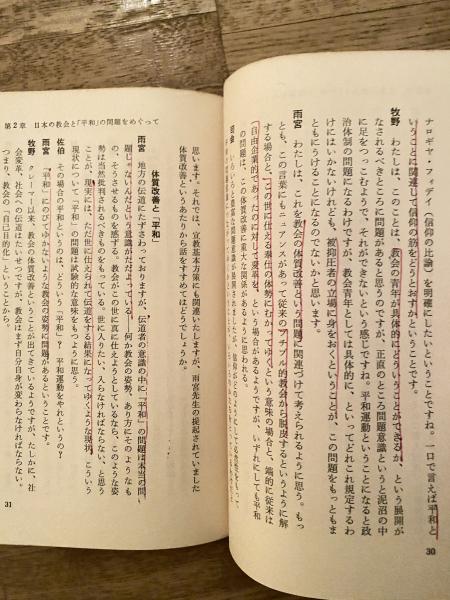 ナロギヤ・フィデイ(信仰の比論)を明確にしたいということですね。一口で言えば平和と
いうことに関連して信仰の筋をどう通すかということです。
牧野 わたしは、このことは、教会の青年が具体的にどういうことができるか、という展開が
なされるべきところに問題があると思うのですが、正直のところ問題意識というと泥沼の中
に足をつっこむようで、それができないという感じですね。平和運動ということになると政
治体制の問題になるわけですが、教会青年としては具体的に、といってどれこれ規定するわ
けにはいかないけれども、被抑圧者の立場に身をおくということが、この問題をもっともま
ともにうけることになるのでないかと思います。
雨宮 わたしは、これを教会の体質改善という問題に関連づけて考えられるように思う。もっ
とも、この言葉にもニュアンスがあって従来のプチブル的教会から脱皮するというように解
する場合と、「この世に仕える奉仕の体勢にむかってゆく」という意味の場合と、端的に従来は
「自由企業的であったのに対して変革を」、という場合があるようですが、いずれにしても平和
の問題は、この体質改善に重大な関係があるように思われる。
司会
30
第2章 日本の教会と「平和」の問題をめぐって
思います。それでは、宣教基本方策にも関連いたしますが、雨宮先生の提起されていました
体質改善というあたりから話をすすめてはどうでしょうか。
体質改善と「平和」
雨宮 地方の伝道にたずさわっておりますが、伝道者の意識の中に「平和」の問題は本当の問
題じゃないんだという意識がただよっている――何か教会の姿勢、あり方にそのようなも
の、そうさせるものを感ずる。教会がこの世に真に仕えようとしているなら、このような姿
勢は当然批判されるべきものをもっている。世に入りたい、入らなければならない、と思う
ことが、現実には、ただ世に仕えられて伝道をする結果になってゆくような現状、こういう
現状について「平和」の問題は試験的な意味をもつように思う。
佐伯 その場合の平和というのは、どういう「平和」? 平和運動をやれというの?
雨宮 「平和」にのってゆかないような教会の姿勢に問題があるということです。
牧野 クレーマー以来、教会の体質改善ということが出てきているようですが、たしかに、社
会変革、社会への伝道はたいせつですが、教会はまず自分自身が変わらなければならない。
つまり、教会の「自己目的化」ということから。
31